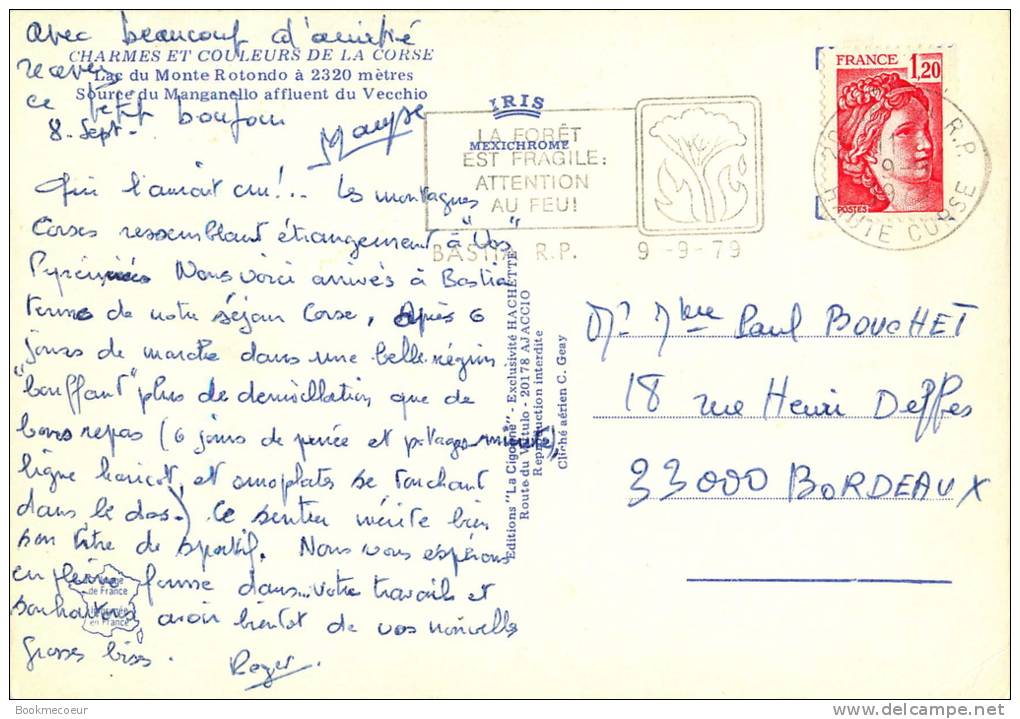 avec beaucoup d'amitié
CHARMES ET COULEURS DE LA CORSE
recevez
Lac du Monte Rotondo à 2320 mètres
Source du Manganello affluent du Vecchio
ce petit bonjour
8. Sept.
Maryse
Qui l'aurait cru!.. Les montagnes
Corses ressemblant étrangement à "Vos"
Pyrénées Nous voici arrivés à Bastia
terme de notre séjour Corse, Après 6
jours de marche dans une belle région
"bouffant" plus de dénivellation que de
bons repas (6 jours de purée et potages minute),
ligne haricot, et omoplates se touchant
dans le dos.) Ce sentier mérite bien
son titre de sportif. Nous vous espérons
en pleine forme dans.. votre travail et
souhaitons avoir bientôt de vos nouvelles
grosses bises. Roger.
Image
de France
Imprimée
en France
IRIS
MEXICHROME
LA FORÊT
EST FRAGILE:
ATTENTION
AU FEU!
BASTIA R.P. 9 -9-79
FRANCE 1,20
POSTES
R.P.
HAUTE CORSE
Editions "La Cigogne" - Exclusivité HACHETTE
Route du Vittulo - 20178 AJACCIO
Reproduction interdite
Cliché aérien C. Geay
Mr Mme Paul BOUCHET
18 rue Henri Deffes
33000 BORDEAUX
Bookmecoeur
www.delcampe.net